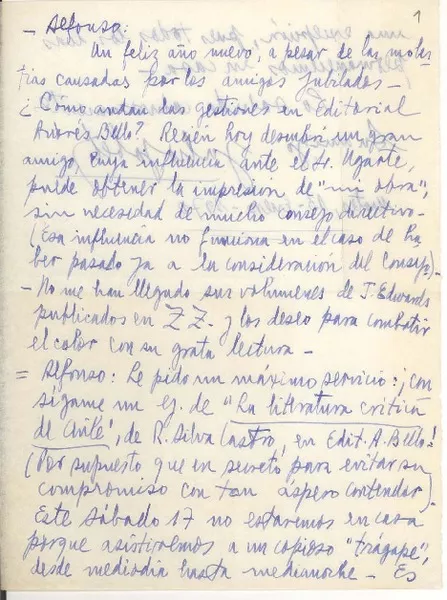 1
- Alfonso:
Un feliz año nuevo, a pesar de las moles
tias causadas por los amigos jubilados -
¿Cómo andan las gestiones en Editorial
Andrés Bello? Recién hoy descubrí un gran
amigo, cuya influencia ante el Sr. Ugarte,
puede obtener la impresión de "mi obra",
sin necesidad de mucho consejo directivo -
(Esa influencia no funciona en el caso de ha
ber pasado ya a la consideración del Consejo).
- No me han llegado sus volúmenes de J. Edwards
publicados en Z Z. y los deseo para combatir
el calor con su grata lectura -
= Alfonso: Le pido un máximo servicio: ¡con
sígame un ej. de "La literatura crítica
de Chile", de R. Silva Castro, en Edit. A. Bello!
(Por supuesto que en secreto para evitar su
compromiso con tan áspero contendor)
Este sábado 17 no estaremos en casa
porque asistiremos a un copioso "trágape",
desde mediodía hasta medianoche - Es